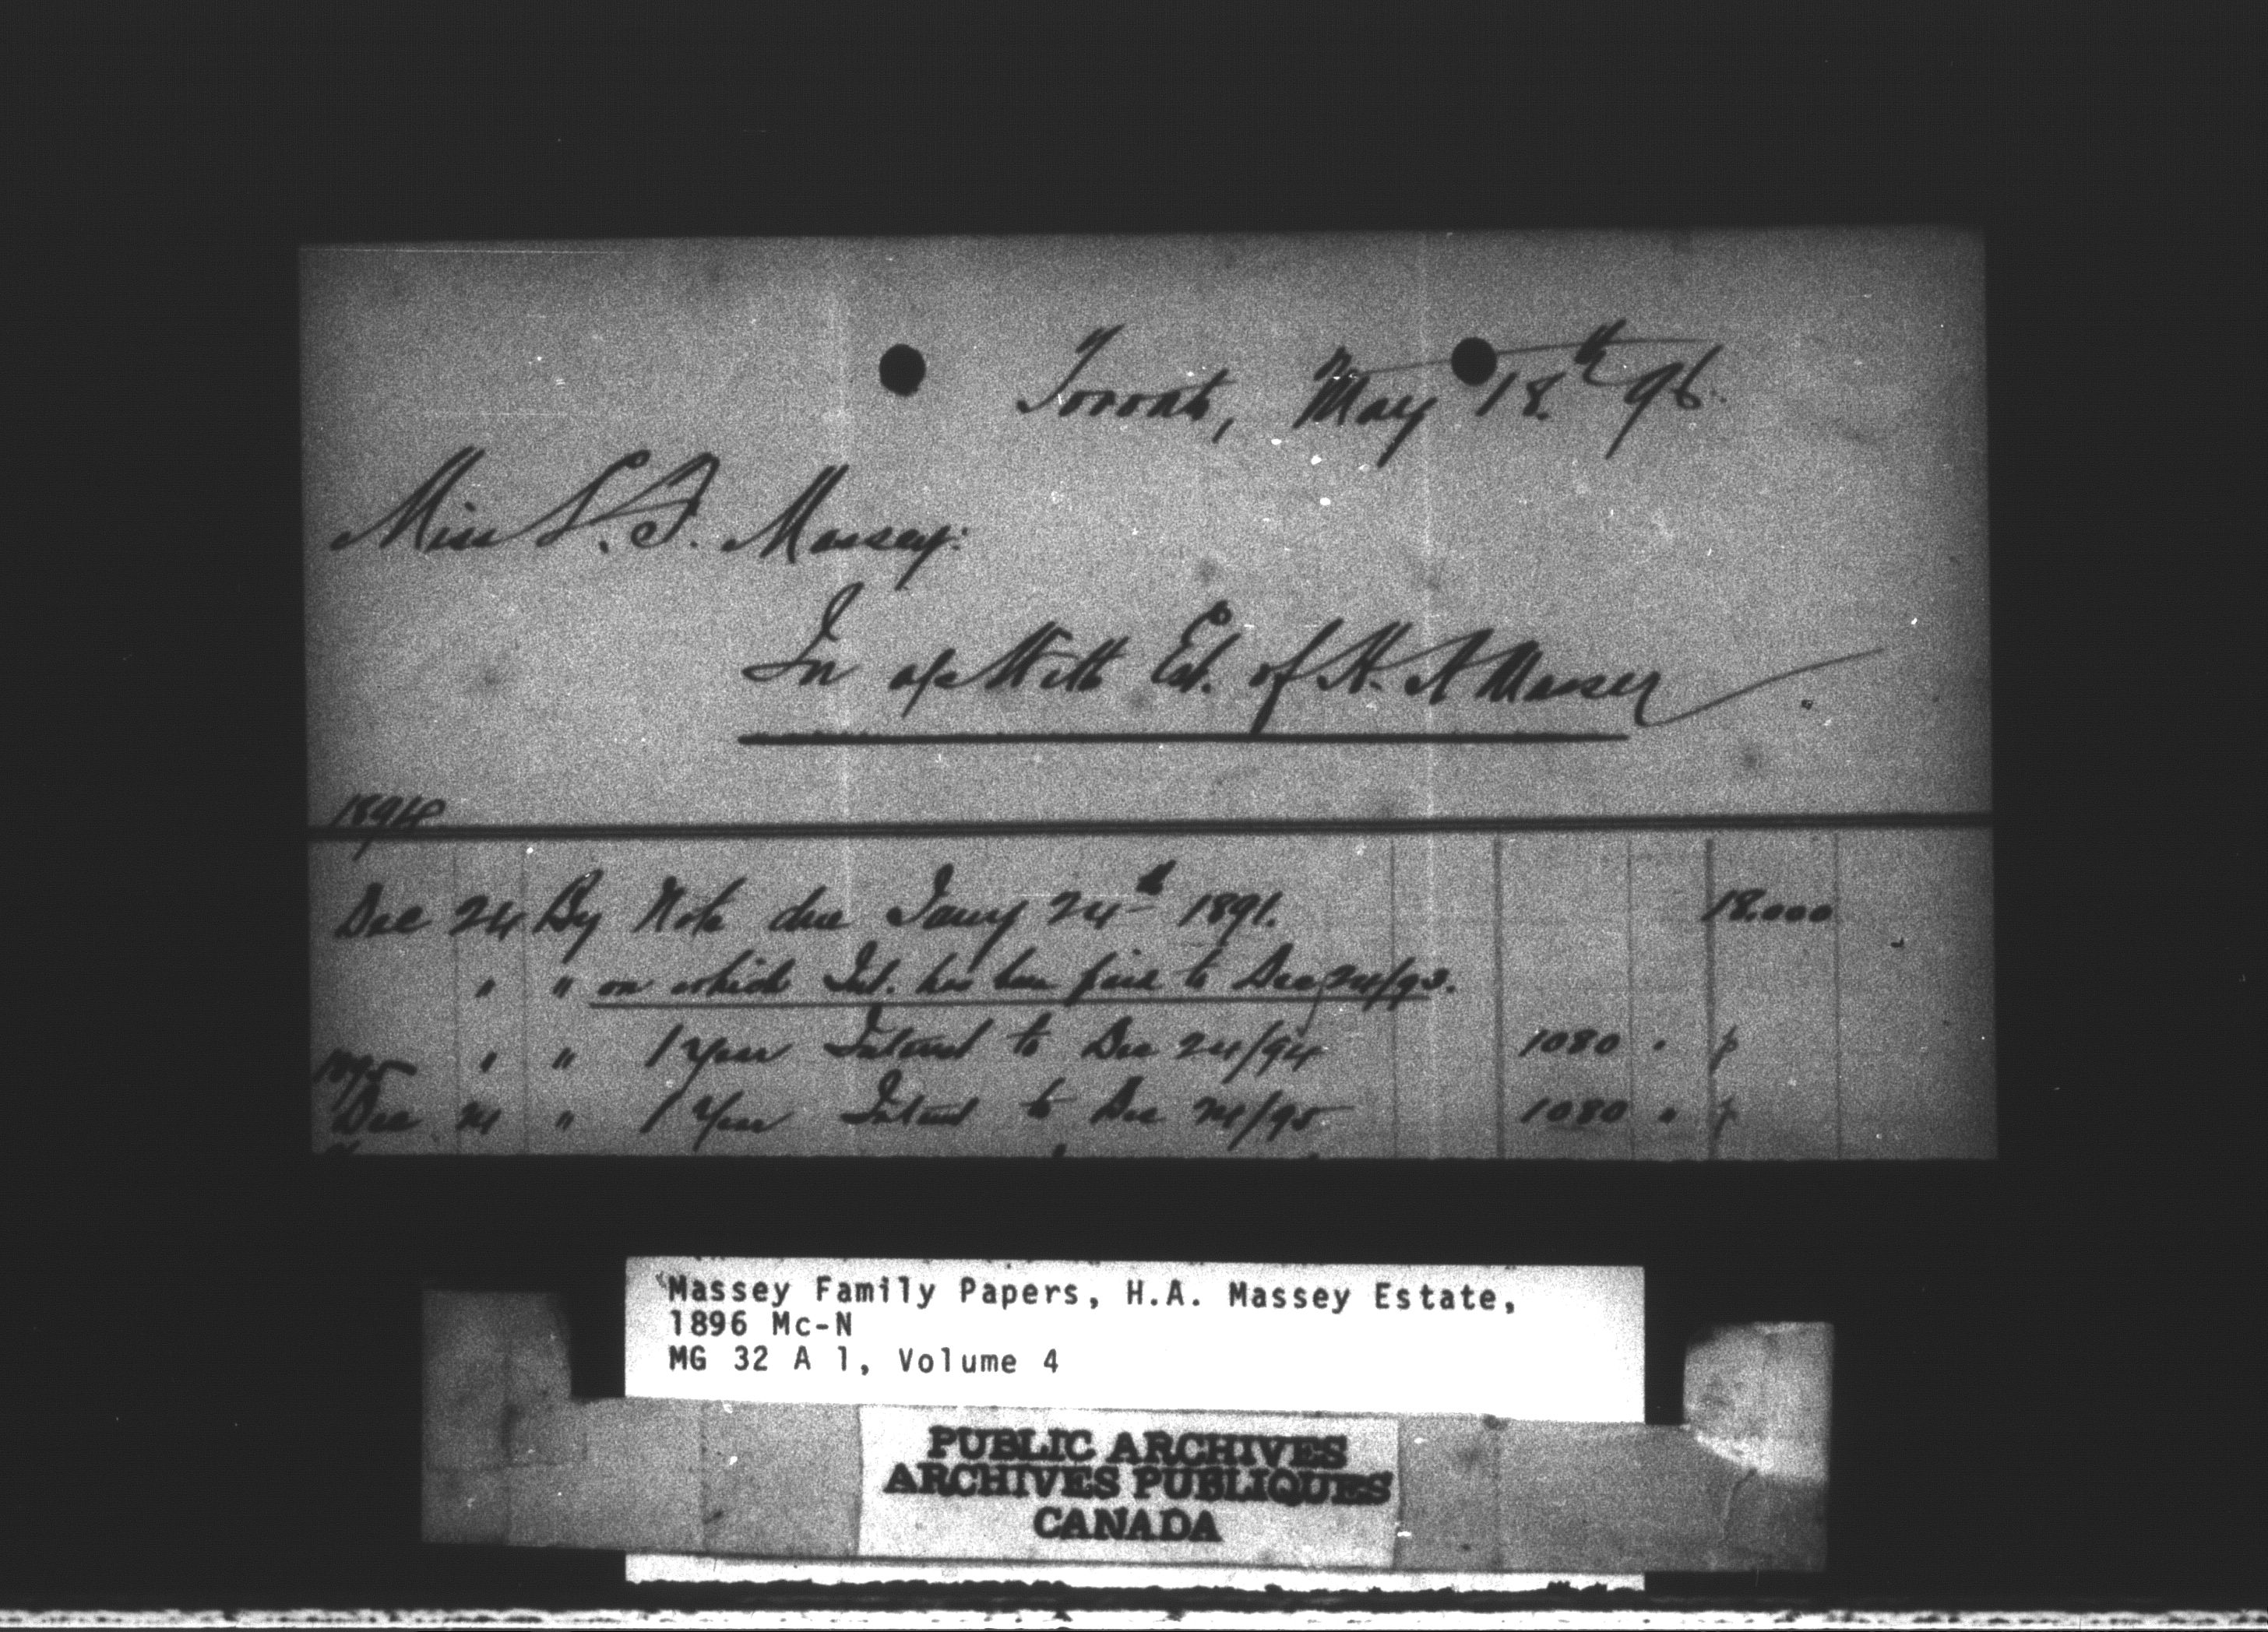 Toronto, May 18th 96.
Miss L. F. Massey:
In a/c With Est. of H. A Massey
1894
Dec 24 By Note due Jany 24th 1891. 18.000
" " on which Int. has been paid to Dec 24/93.
" " 1 Year Interest to Dec 24/94 1080 .
1895
Dec 24 " 1 Year Interest to Dec 24/95 1080 .
Massey Family Papers, H.A. Massey Estate,
1896 Mc-N
MG 32 A 1, Volume 4
PUBLIC ARCHIVES
ARCHIVES PUBLIQUES
CANADA